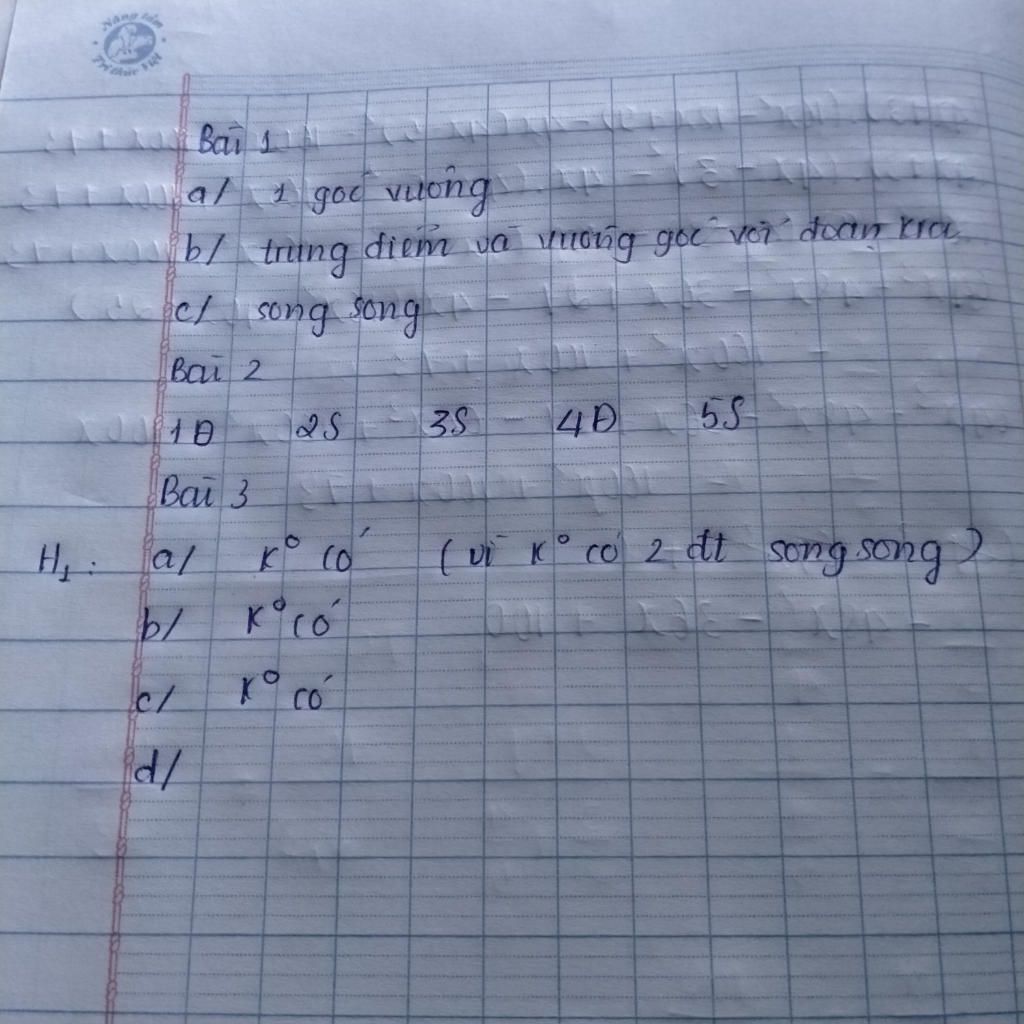 Nâng tầm
Trí thức Việt
Bài 1
a/ 1 góc vuông
b/ trung điểm và vuông góc với đoạn kia
c/ song song
Bài 2
1Đ 2S 3S 4Đ 5S
Bài 3
H₁: a/ K° có (vì K° có 2 đt song song)
b/ K° có
c/ K° có
d/